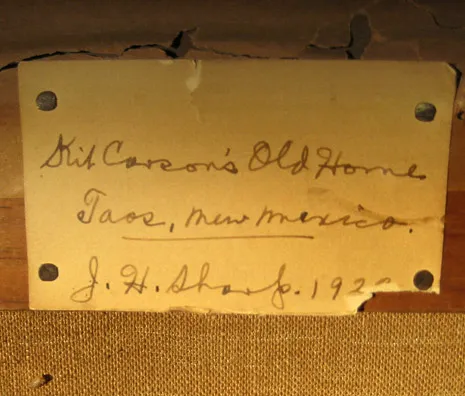 Kit Carson's Old Home
Taos, New Mexico.
J. H. Sharp. 192